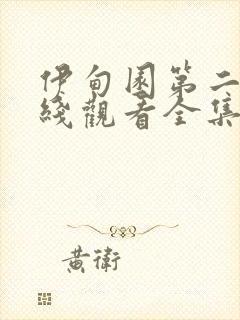 伊甸園第二
綫觀看全集
黃衛